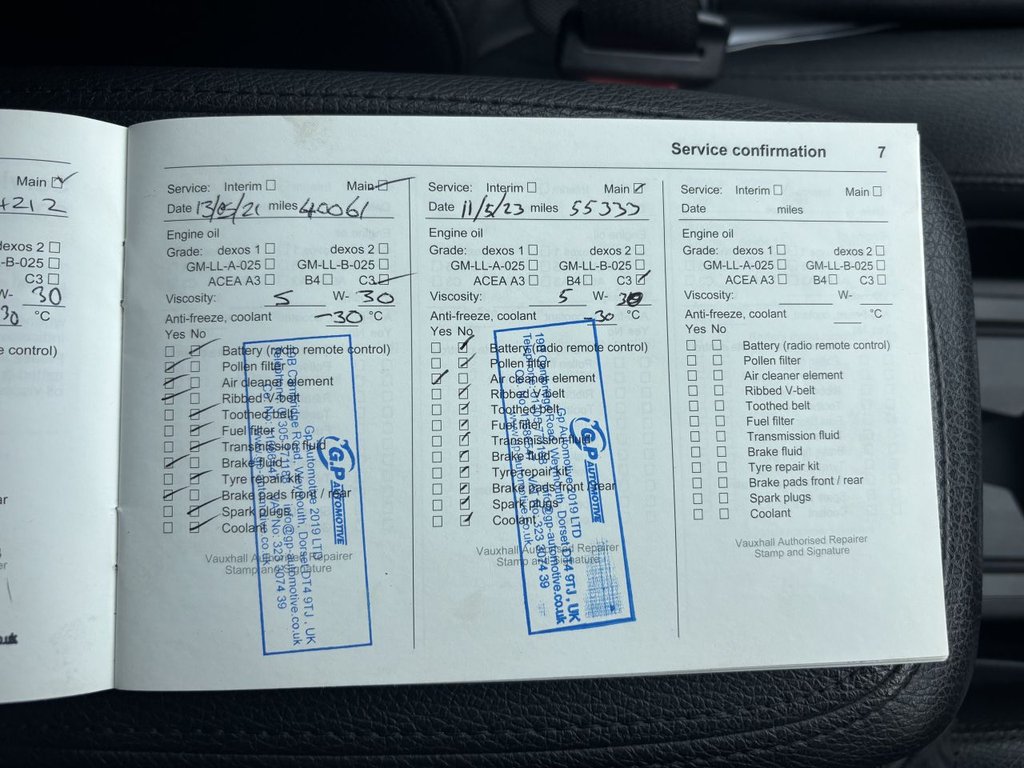 Service confirmation 7
Main
4212
dexos 2
L-B-025
C3
W- 30
30 °C
e control)
Service: Interim Main
Date 13/05/21 miles 40061
Engine oil
Grade: dexos 1 dexos 2
GM-LL-A-025 GM-LL-B-025
ACEA A3 B4 C3
Viscosity: 5 W- 30
Anti-freeze, coolant -30 °C
Yes No
Battery (radio remote control)
Pollen filter
Air cleaner element
Ribbed V-belt
Toothed belt
Fuel filter
Transmission fluid
Brake fluid
Tyre repair kit
Brake pads front / rear
Spark plugs
Coolant
Vauxhall Authorised Repairer
Stamp and Signature
G.P AUTOMOTIVE
Gp Automotive 2019 LTD
Cambridge Road, Weymouth, Dorset DT4 9TJ, UK
info@gp-automotive.co.uk
Service: Interim Main
Date 11/5/23 miles 55333
Engine oil
Grade: dexos 1 dexos 2
GM-LL-A-025 GM-LL-B-025
ACEA A3 B4 C3
Viscosity: 5 W- 30
Anti-freeze, coolant -30 °C
Yes No
Battery (radio remote control)
Pollen filter
Air cleaner element
Ribbed V-belt
Toothed belt
Fuel filter
Transmission fluid
Brake fluid
Tyre repair kit
Brake pads front / rear
Spark plugs
Coolant
Vauxhall Authorised Repairer
Stamp and Signature
G.P AUTOMOTIVE
Gp Automotive 2019 LTD
Cambridge Road, Weymouth, Dorset DT4 9TJ, UK
Service: Interim Main
Date miles
Engine oil
Grade: dexos 1 dexos 2
GM-LL-A-025 GM-LL-B-025
ACEA A3 B4 C3
Viscosity: W-
Anti-freeze, coolant °C
Yes No
Battery (radio remote control)
Pollen filter
Air cleaner element
Ribbed V-belt
Toothed belt
Fuel filter
Transmission fluid
Brake fluid
Tyre repair kit
Brake pads front / rear
Spark plugs
Coolant
Vauxhall Authorised Repairer
Stamp and Signature